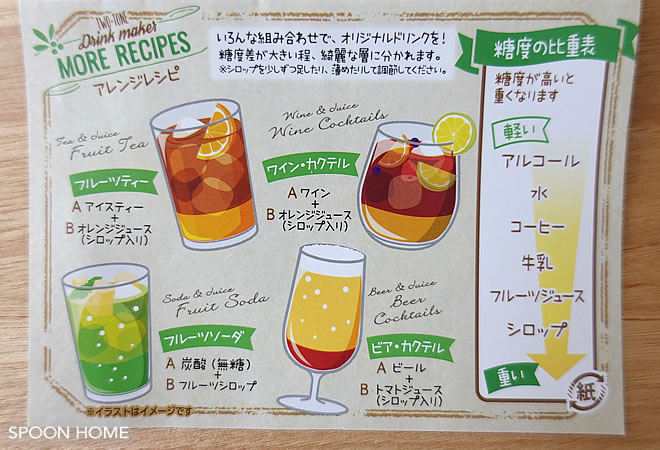 TWO-TONE
Drink maker
MORE RECIPES
アレンジレシピ
いろんな組み合わせで、オリジナルドリンクを!
糖度差が大きい程、綺麗な層に分かれます。
※シロップを少しずつ足したり、薄めたりして調節してください。
Tea & juice
Fruit Tea
フルーツティー
A アイスティー
+
B オレンジジュース
(シロップ入り)
Wine & juice
Wine Cocktails
ワイン・カクテル
A ワイン
+
B オレンジジュース
(シロップ入り)
Soda & juice
Fruit Soda
フルーツソーダ
A 炭酸(無糖)
+
B フルーツシロップ
Beer & juice
Beer
Cocktails
ビア・カクテル
A ビール
+
B トマトジュース
(シロップ入り)
※イラストはイメージです
糖度の比重表
糖度が高いと
重くなります
軽い
アルコール
水
コーヒー
牛乳
フルーツジュース
シロップ
重い
紙
SPOON HOME